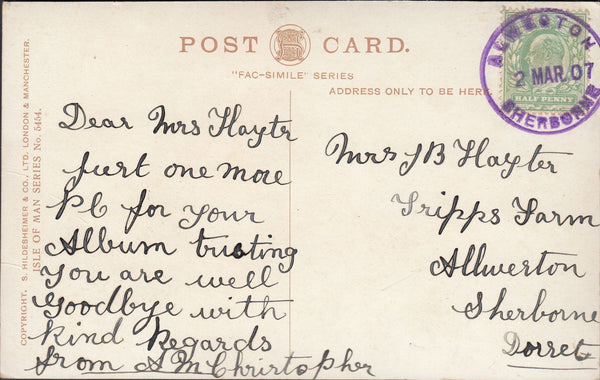 COPYRIGHT. S. HILDESHEIMER & CO., LTD. LONDON & MANCHESTER.
ISLE OF MAN SERIES No. 5454.
POST CARD.
"FAC-SIMILE" SERIES
ADDRESS ONLY TO BE HERE
Dear Mrs Hayter
just one more
PC for your
Album trusting
you are well
Goodbye with
kind Regards
from A M Christopher
Mrs J B Hayter
Tripps Farm
Allwerton
Sherborne
Dorset
ALWESTON
2 MAR.07
SHERBORNE
HALF PENNY